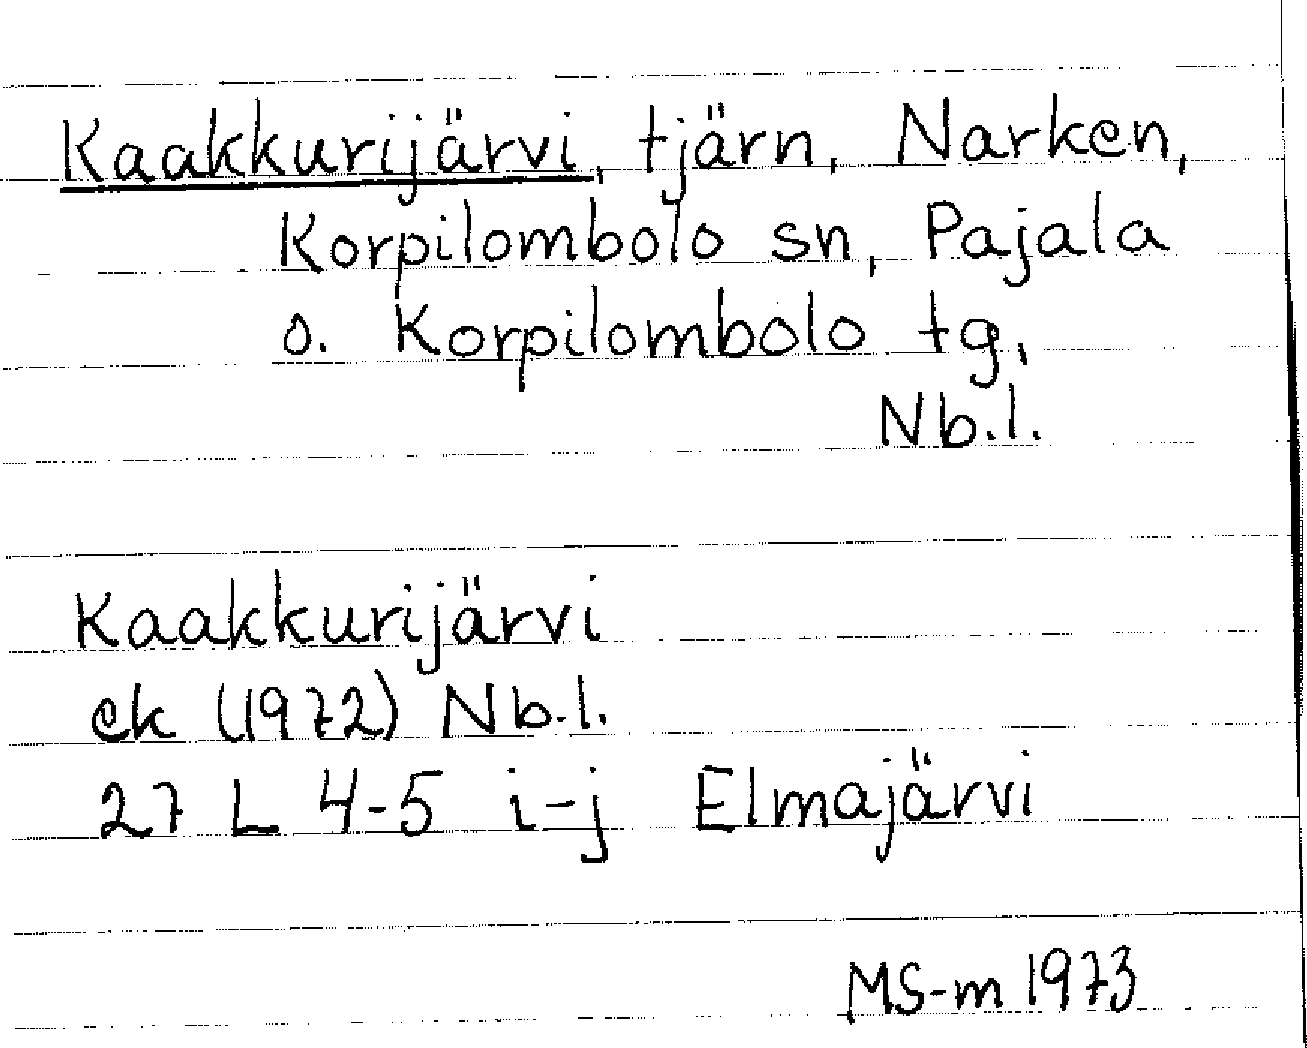 Kaakkurijärvi, tjärn, Narken,
Korpilombolo sn, Pajala
o. Korpilombolo tg,
Nb.l.
Kaakkurijärvi
ek (1972) Nb.l.
27 L 4-5 i-j Elmajärvi
MS-m 1973